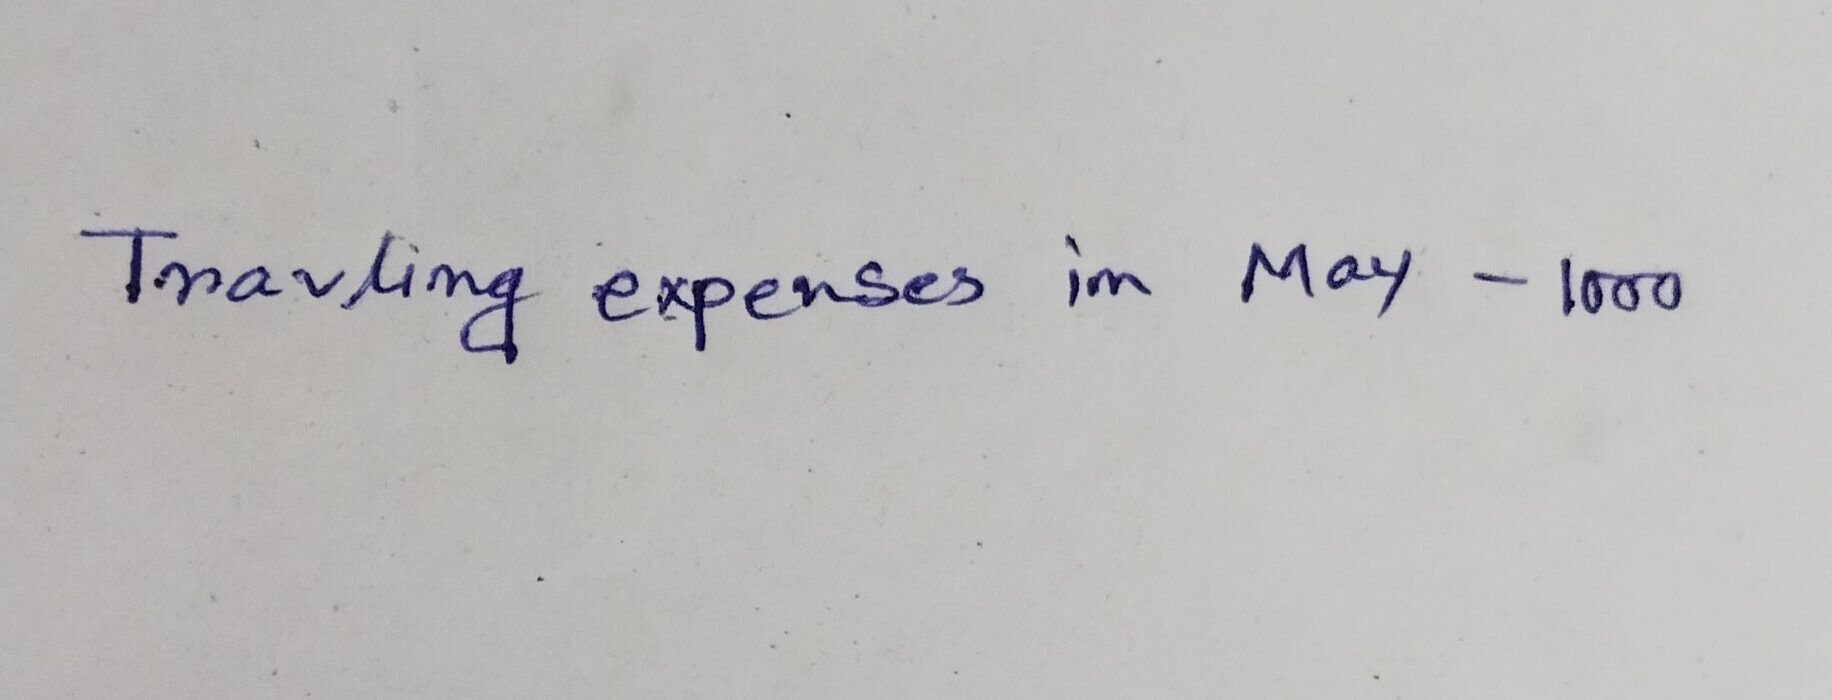 Travling expenses in May - 1000